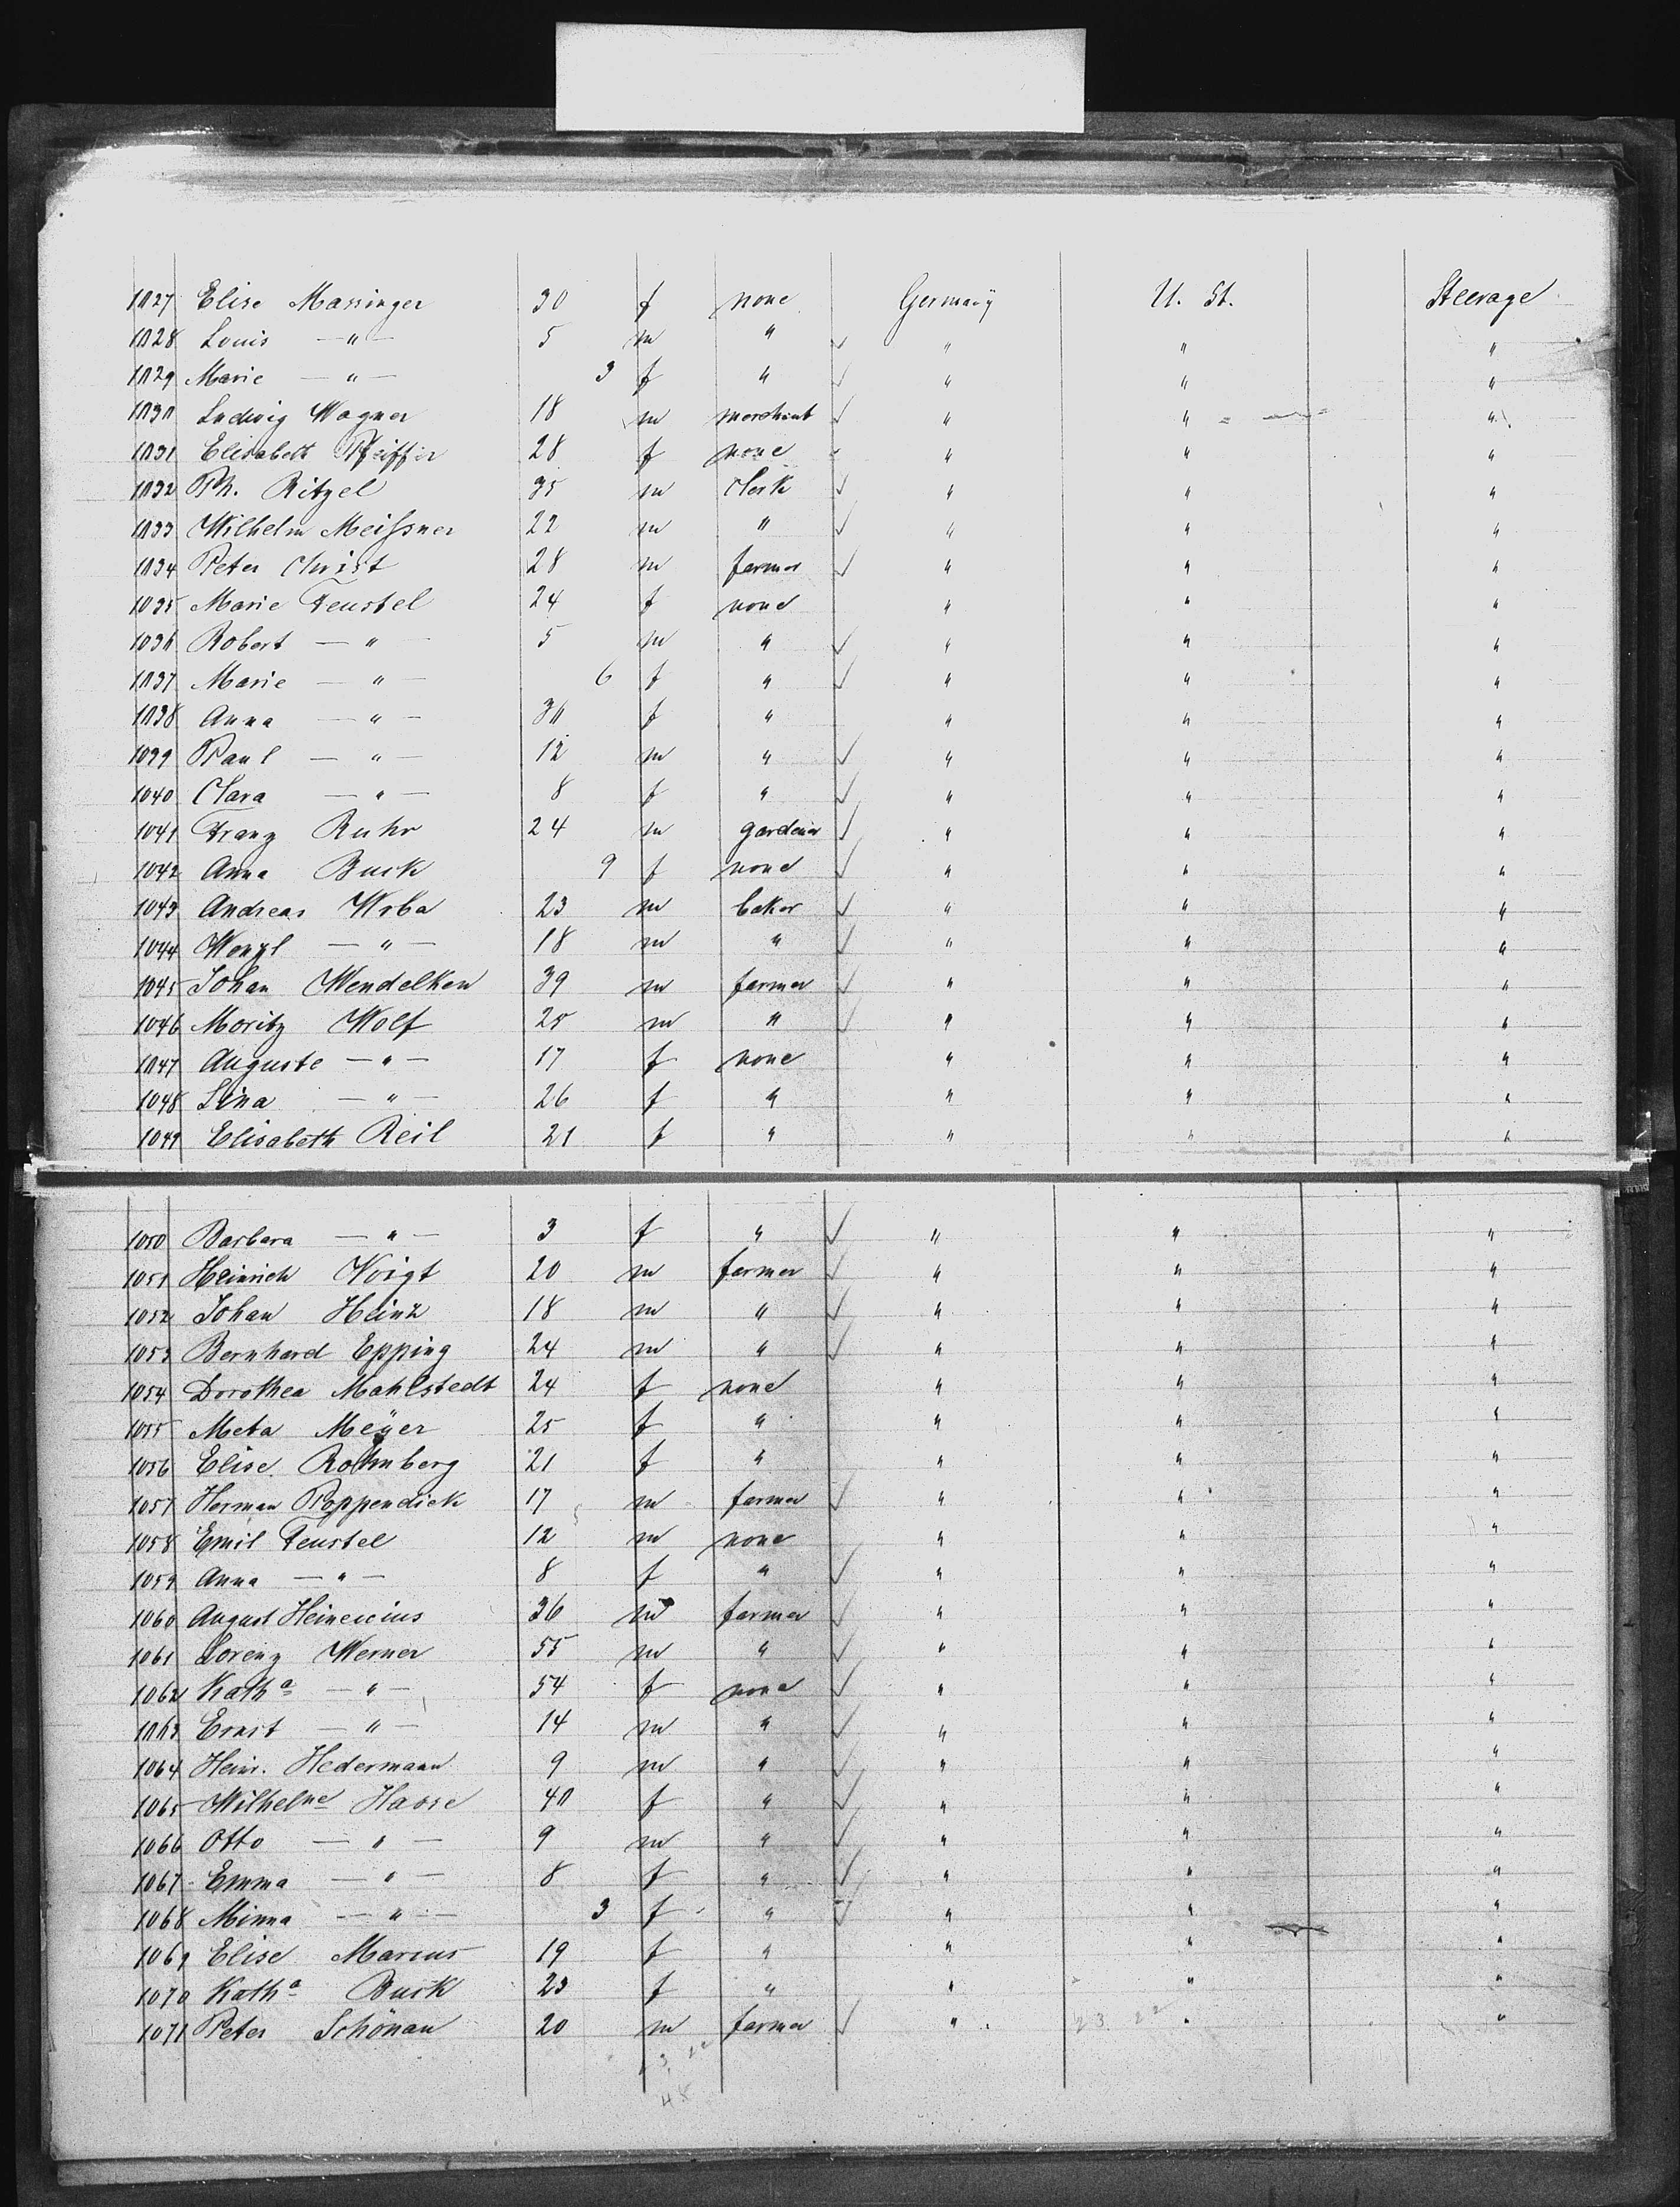 1027 Elise Massinger 30 f none Germany U. St. Steerage
1028 Louis — " — 5 m " " " "
1029 Marie — " — 3 f " " " "
1030 Ludwig Wagner 18 m merchant " " "
1031 Elisabeth Pfeiffer 28 f none " " "
1032 Ph. Ritzel 35 m clerk " " "
1033 Wilhelm Meißner 22 m " " " "
1034 Peter Christ 28 m farmer " " "
1035 Marie Feustel 24 f none " " "
1036 Robert — " — 5 m " " " "
1037 Marie — " — 6 f " " " "
1038 Anna — " — 30 f " " " "
1039 Paul — " — 12 m " " " "
1040 Clara — " — 8 f " " " "
1041 Franz Ruhr 24 m gardener " " "
1042 Anna Buck 9 f none " " "
1043 Andreas Wrba 23 m baker " " "
1044 Wenzl — " — 18 m " " " "
1045 Johan Wendelken 39 m farmer " " "
1046 Moritz Wolf 25 m " " " "
1047 Auguste — " — 17 f none " " "
1048 Lina — " — 26 f " " " "
1049 Elisabeth Reil 21 f " " " "
1050 Barbara — " — 3 f " " " "
1051 Heinrich Voigt 20 m farmer " " "
1052 Johan Heinz 18 m " " " "
1053 Bernhard Epping 24 m " " " "
1054 Dorothea Mahlstedt 24 f none " " "
1055 Meta Meÿer 25 f " " " "
1056 Elise 21 f " " " "
1057 Herman Poppendiek 17 m farmer " " "
1058 Emil Feustel 12 m none " " "
1059 Anna — " — 8 f " " " "
1060 August Heinecius 36 m farmer " " "
1061 Lorenz Werner 55 m " " " "
1062 Katha — " — 54 f none " " "
1063 Ernst — " — 14 m " " " "
1064 Heinr. Hedermann 9 m " " " "
1065 Wilhelne Hasse 40 f " " " "
1066 Otto — " — 9 m " " " "
1067 Emma — " — 8 f " " " "
1068 Minna — " — 3 f " " " "
1069 Elise Marcus 19 f " " " "
1070 Katha Buck 23 f " " " "
1071 Peter Schönau 20 m farmer " 23 22 " "
48